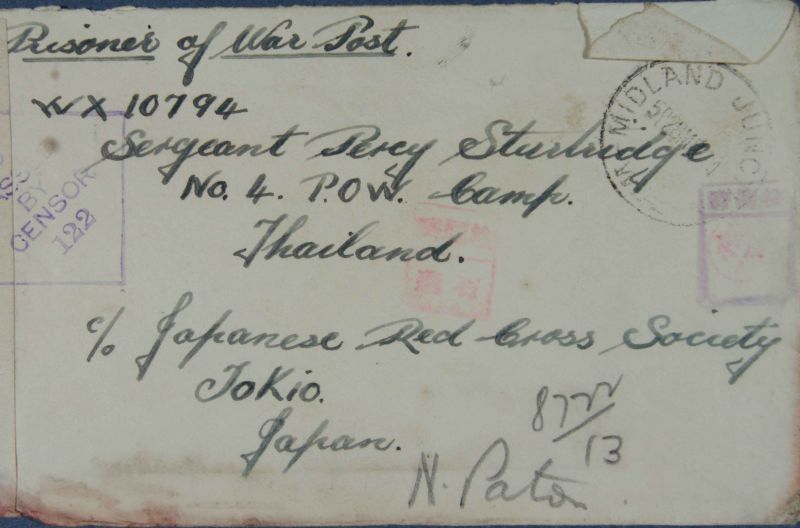 Prisoner of War Post.
WX 10794
Sergeant Percy Sturbridge
No. 4. P.O.W. Camp.
Thailand.
c/o Japanese Red Cross Society
Tokio.
Japan.
BY
CENSOR
122
MIDLAND JUNC
8722/13
N. Paton